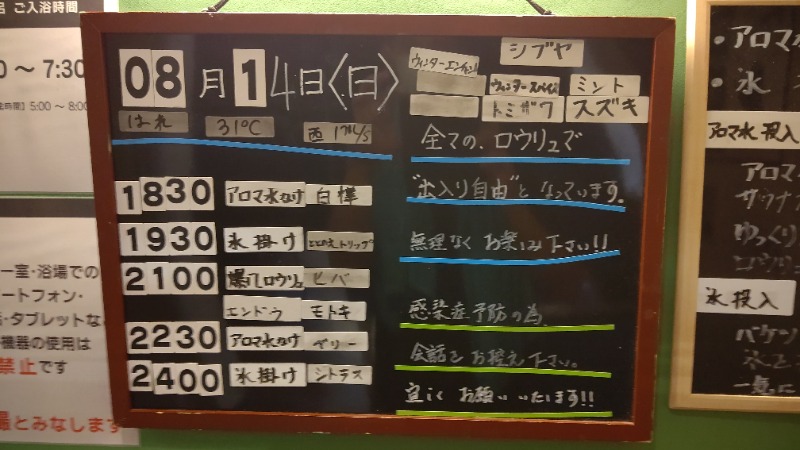 ご入浴時間
0 ～ 7:30
5:00 ～ 8:00
一室・浴場での
ートフォン・
・タブレットな
機器の使用は
禁止です
とみなします
08月14日〈日〉
はれ 31℃ 西
シブヤ
ミント
トミザワ スズキ
全ての、ロウリュで
"出入り自由"となっています。
無理なくお楽しみ下さい!!
1830 アロマ水かけ 白樺
1930 氷掛け
2100 爆汗ロウリュ ヒバ
エンドウ モトキ
2230 アロマ水かけ ベリー
2400 氷掛け シトラス
感染症予防の為、
会話をお控え下さい。
宜しくお願いいたします!!
・アロマ
・氷
アロマ水投入
アロマ
サウナ
ゆっくり
ロウリュ
氷投入
バケン
氷と
一気に